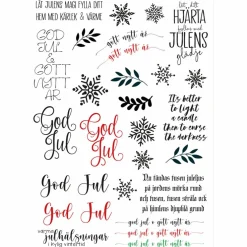 LÅT JULENS MAGI FYLLA DITT
HEM MED KÄRLEK & VÄRME
GOD
JUL
&
GOTT
NYTT
ÅR
gott nytt år
gott nytt år
låt ditt
HJÄRTA
fyllas med
JULENS
glädje
It's better
to light
a candle
than to curse
the darkness
God
Jul
God
Jul
gott nytt år
gott nytt år
gott nytt år
God Jul
God Jul
Nu tändas tusen juleljus
på jordens mörka rund
och tusen, tusen stråla ock
på himlens djupblå grund
varma
julhälsningar
i kylig vintertid
god jul & gott nytt år
god jul & gott nytt år
god jul & gott nytt år